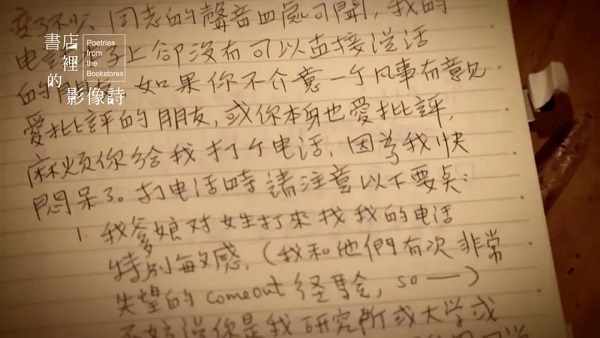 變了不少，同志的聲音四處可聞，我的
电話 子上卻沒有可以直接说话
的朋友。如果你不介意一个凡事有意見
愛批評的朋友，或你本身也愛批評，
麻烦你給我打个电话，因為我快
悶呆了。打电话時請注意以下要点：
1. 我爹娘对女生打來找我的电话
特別敏感，(我和他們有次非常
失望的 comeout 经驗，so—)
不妨说你是我研究所或大学或
書店裡的影像詩
Poetries from the Bookstores